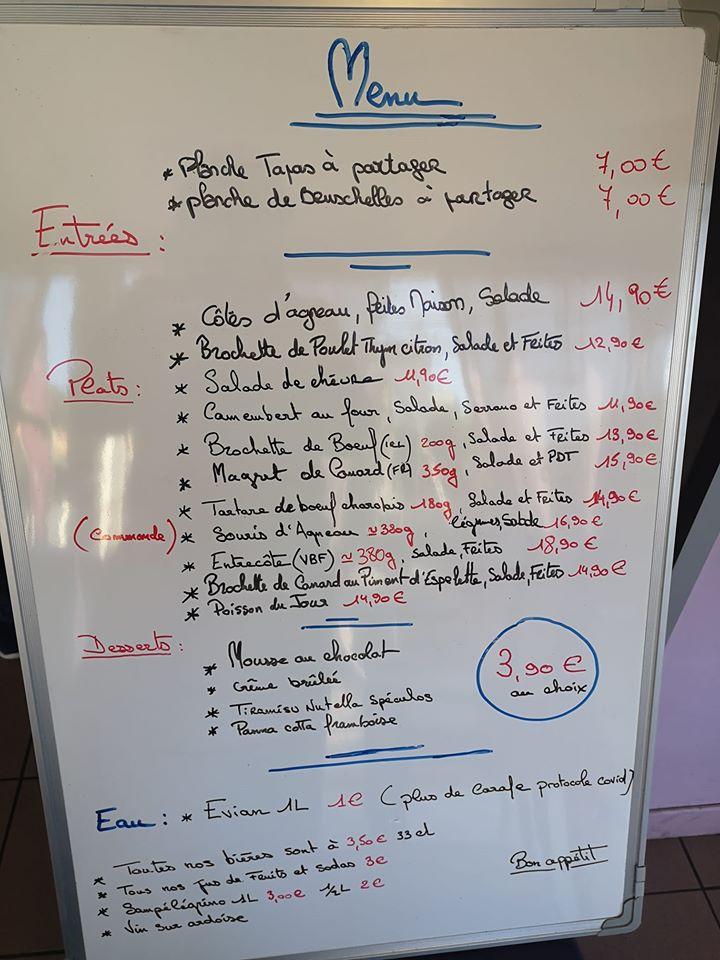 Menu
* Planche Tapas à partager 7,00€
* planche de Bruschelles à partager 7,00€
Entrées :
* Côtes d'agneau, frites Maison, Salade 14,90€
* Brochette de Poulet Thym citron, Salade et Frites 12,90€
Plats :
* Salade de chèvre 11,90€
* Camembert au four, Salade, Serrano et Frites 11,90€
* Brochette de Boeuf (IRL) 200g, Salade et Frites 13,90€
* Magret de Canard (FR) 350g, Salade et PDT 15,90€
* Tartare de boeuf charolais 180g, Salade et Frites 14,90€
(Commande) * Souris d'Agneau ≃ 380g, légumes, Salade 16,90€
* Entrecôte (VBF) ≃ 380g, Salade, Frites 18,90€
* Brochette de Canard au Piment d'Espelette, Salade, Frites 14,90€
* Poisson du Jour 14,90€
Desserts :
* Mousse au chocolat
* Crème brûlée
* Tiramisu Nutella Spéculos
* Panna cotta framboise
3,90€
au choix
Eau : * Evian 1L 1€ (plus de carafe protocole covid)
* Toutes nos bières sont à 3,50€ 33cl
* Tous nos jus de Fruits et sodas 3€
* Sampélégrino 1L 3,00€ ½L 2€
* Vin sur ardoise
Bon appétit